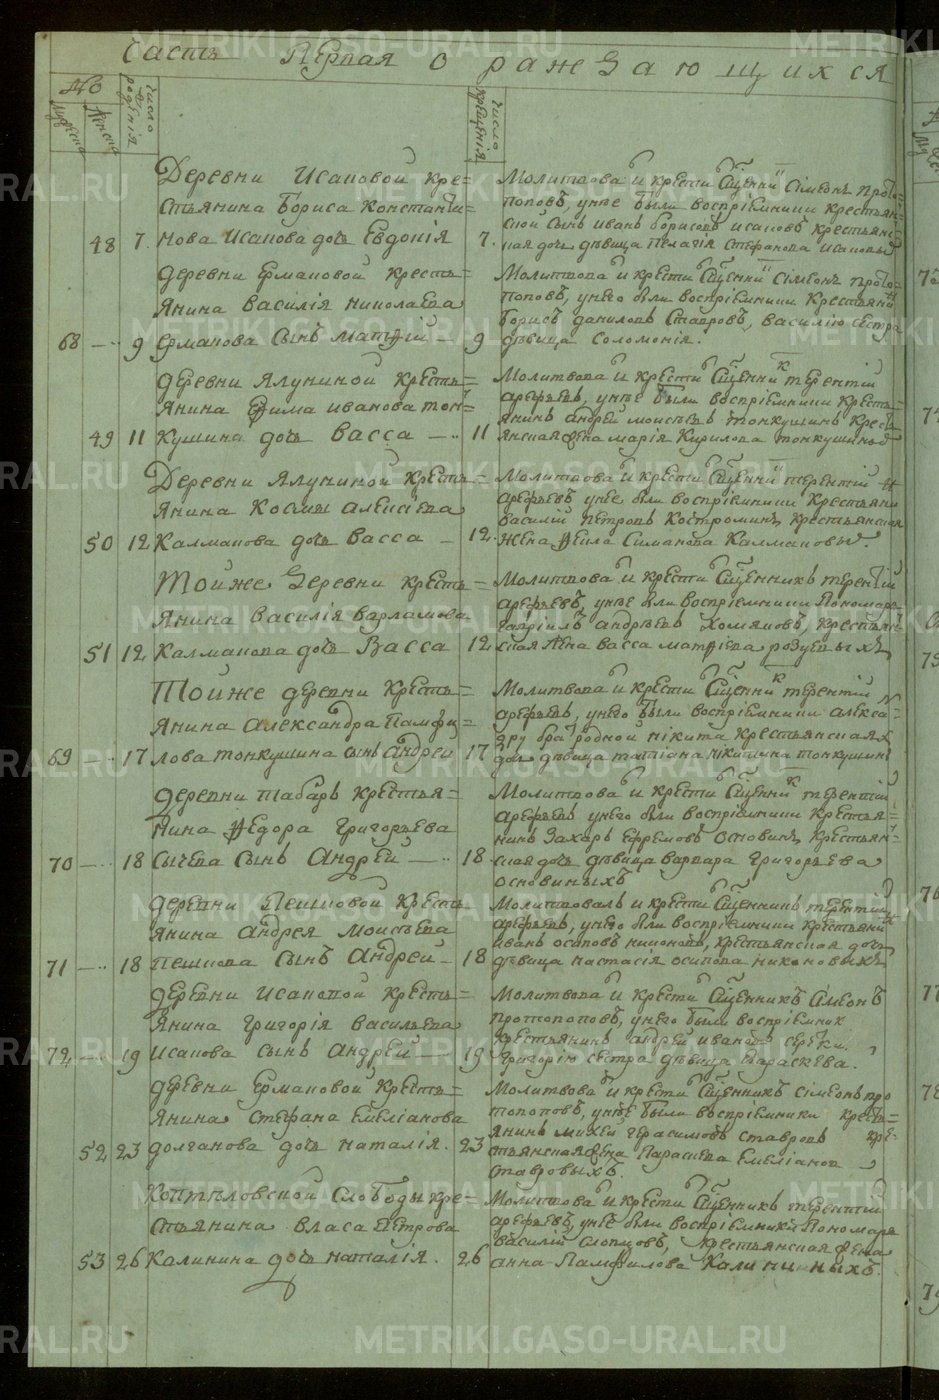 Часть Первая о раждающихся
№
мужеска
женска
число рождѣнія
число крѣщенія
Деревни Исаковой кре=
стьянина Бориса Константи=
48 7. нова Исакова дочь Евдокія 7.
Молитвова и крести Сщенни Сімеонъ прото=
поповъ, унѣе были воспріемники крестьян=
ской сынъ иванъ борисовъ исаковъ крестьянс=
кая дочь дѣвица Пелагія Стефанова исаковы
деревни ермаковой кресть=
янина василія николаева
68 9 ермакова сынъ матѳій 9
Молитвова и крести Сщенни Сімеонъ прото=
поповъ, унѣго были воспріемники Крестьяни
борисъ даниловъ Ставровъ, василію сестра
дѣвица Соломонія.
деревни Ялуниной кресть=
янина Ефима иванова тон=
49 11 кушина дочь васса 11
Молитвова и крести Сщенни терентій
арефьевъ, унѣе были воспріемники кресть=
янинъ андрей моисѣевъ тонкушинъ крест=
янская жена марія Кирилова тонкушины
Деревни Ялуниной кресть=
янина Космы алексіева
50 12 Калмакова дочь васса 12.
Молитвова и крести Сщенни терентий
арефьевъ унѣе были воспріемники крестьяни
василій петровъ Костроминъ, крестьянская
жена Ѳекла Симанова Калмаковы.
Тойже деревни кресть=
янина василія варламова
51 12 Калмакова дочь васса 12
Молитвова и крести Сщенникъ терентій
арефьевъ, унѣе были воспріемники Пономарь
гавріилъ андрѣевъ Хомяковъ, крестьян=
ская жена васса матѳіева розуевыхъ
Тойже деревни кресть=
янина александра Памфи=
69 17 лова тонкушина сынъ андрей 17
Молитвова и крести Сщенни терентій
арефьевъ, унѣго были воспріемники алекса=
дру братъ родной никита крестьянская
дочь дѣвица татіана никитина тонкушины
деревни табаръ крестья=
нина Ѳедора григорьева
70 18 Сысева сынъ андрей 18
Молитвова и крести Сщенни терентій
арефьевъ унѣго были воспріемники крестья=
нинъ захаръ ефремовъ основинъ, крестьян=
ская дочь дѣвица варвара григорьева
основиныхъ
деревни Пешковой кресть
янина андрея Моисѣева
71 18 пешкова сынъ андрей 18
Молитвовалъ и крести Сщенникъ терентій
арефьевъ, унѣго были воспріемники крестьяни
иванъ осиповъ никоновъ, крестьянская дочь
дѣвица настасія осипова никоновыхъ
деревни исаковой кресть=
янина григорія васильева
72 19 исакова сынъ андрей 19
Молитвова и крести Сщенникъ Сімеонъ
протопоповъ, унѣго были воспріемник
крестьянинъ андрей иванов
григорію сестра дѣвица Параскева.
деревни ермаковой кресть=
янина Стефана емеліанова
52 23 долганова дочь наталія. 23
Молитвова и крести Сщенникъ Сімеонъ про
топоповъ, унѣе были воспріемники крест=
янинъ михей герасимовъ ставровъ кре=
стьянская жена Параскева Емеліанов
ставровыхъ.
Коптѣловской Слободы кре=
стьянина власа Петрова
53 26 Калинина дочь наталія. 26
Молитвова и крести Сщенникъ терентій
арефьевъ, унѣе были воспріемники Пономарь
василій слопцовъ, крестьянская жена
анна Памфилова Калининыхъ.
METRIKI.GASO-URAL.RU